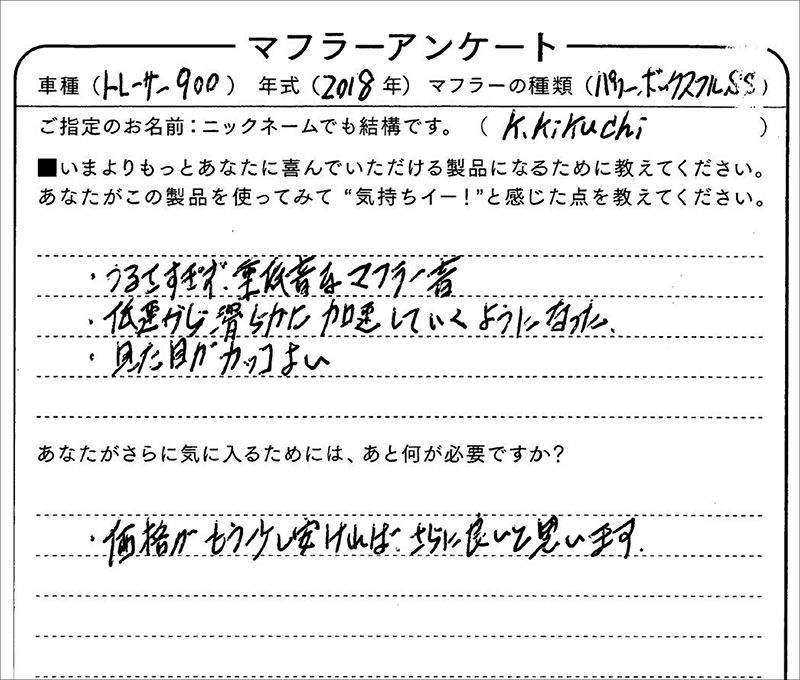 マフラーアンケート
車種（トレーサー900） 年式（2018年） マフラーの種類（パワーボックスフルSS）
ご指定のお名前：ニックネームでも結構です。（K.Kikuchi）
■いまよりもっとあなたに喜んでいただける製品になるために教えてください。
あなたがこの製品を使ってみて“気持ちイー！”と感じた点を教えてください。
・うるさすぎず、重低音なマフラー音
・低速から滑らかに加速していくようになった。
・見た目がカッコよい
あなたがさらに気に入るためには、あと何が必要ですか？
・価格がもう少し安ければ、さらに良いと思います。